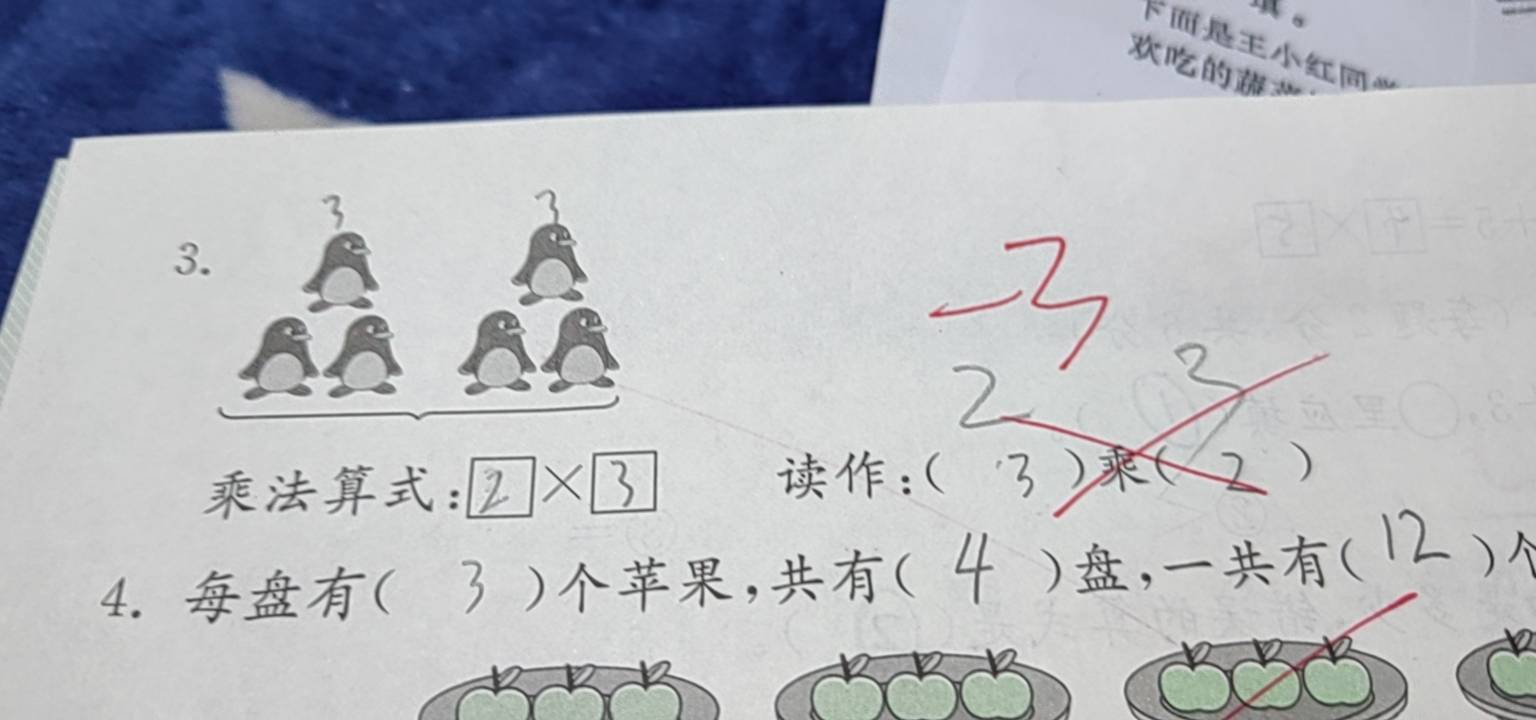 填。
下面是王小红同学
欢吃的蔬菜
3 3
3.
-3
2 3
乘法算式:2×3 读作:( 3 )乘( 2 )
4. 每盘有( 3 )个苹果,共有( 4 )盘,一共有( 12 )个